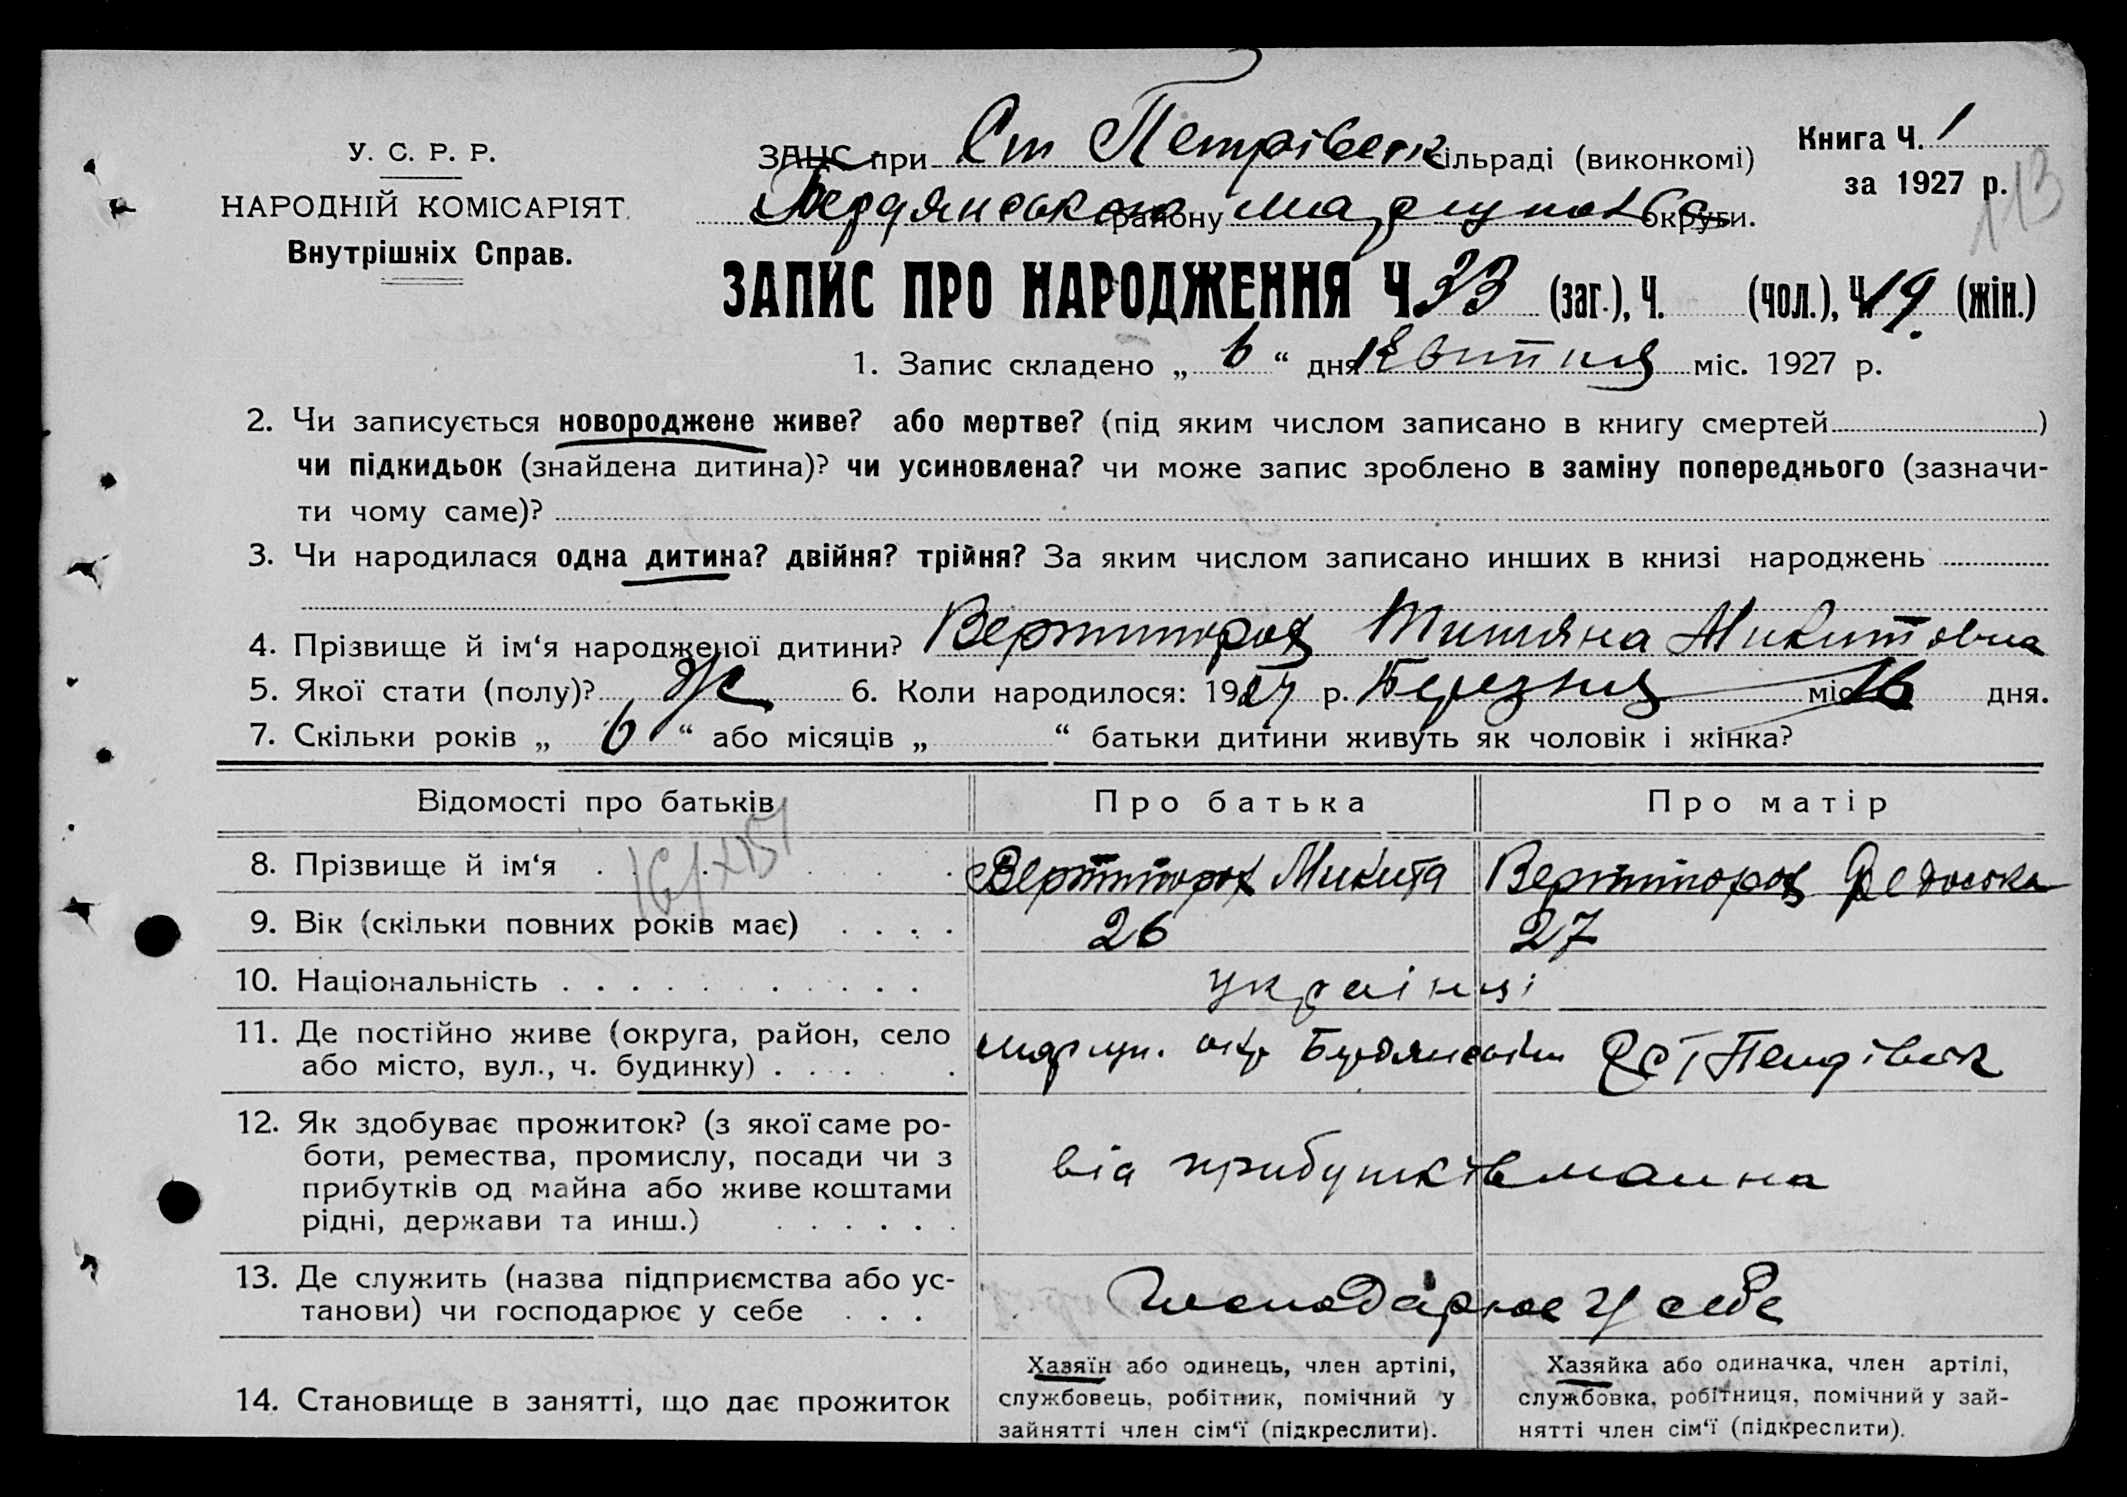 У. С. Р. Р.
НАРОДНІЙ КОМІСАРІЯТ
Внутрішніх Справ.
ЗАЦС при Ст Петрівськ сільраді (виконкомі)
Бердянського району Маріупол округи.
Книга Ч. 1
за 1927 р.
113
ЗАПИС ПРО НАРОДЖЕННЯ Ч. 33 (заг.), Ч. (чол.), Ч. 19 (жін.)
1. Запис складено „ 6 “ дня Квітня міс. 1927 р.
2. Чи записується новороджене живе? або мертве? (під яким числом записано в книгу смертей )
чи підкидьок (знайдена дитина)? чи усиновлена? чи може запис зроблено в заміну попереднього (зазначи-
ти чому саме)?
3. Чи народилася одна дитина? двійня? трійня? За яким числом записано инших в книзі народжень
4. Прізвище й ім‘я народженої дитини? Титяна Микитовна
5. Якої стати (полу)? Ж 6. Коли народилося: 1927 р. Березня міс. 16 дня.
7. Скільки років „ 6 “ або місяців „ “ батьки дитини живуть як чоловік і жінка?
Відомості про батьків Про батька Про матір
8. Прізвище й ім‘я Микита Федоська
9. Вік (скільки повних років має) 26 27
10. Національність українці
11. Де постійно живе (округа, район, село Маріуп. окр Бердянськ с Ст Петрівськ
або місто, вул., ч. будинку)
12. Як здобуває прожиток? (з якої саме ро-
боти, ремества, промислу, посади чи з від прибутків маина
прибутків од майна або живе коштами
рідні, держави та инш.)
13. Де служить (назва підприємства або ус- Господарює у себе
танови) чи господарює у себе
14. Становище в занятті, що дає прожиток
Хазяїн або одинець, член артілі,
службовець, робітник, помічний у
зайнятті член сім‘ї (підкреслити).
Хазяйка або одиначка, член артілі,
службовка, робітниця, помічний у зай-
нятті член сім‘ї (підкреслити).